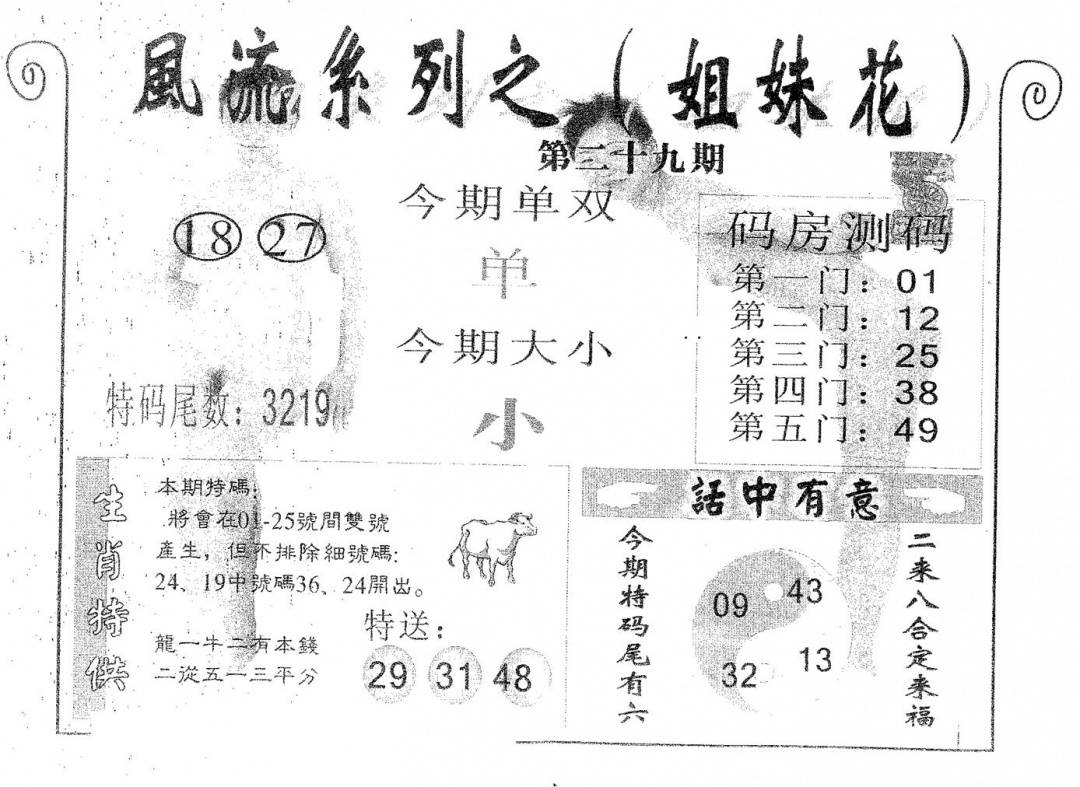 風流系列之（姐妹花）
第三十九期
18 27
今期单双
单
今期大小
小
特码尾数：3219
码房测码
第一门：01
第二门：12
第三门：25
第四门：38
第五门：49
生肖特供
本期特碼：
將會在01-25號間雙號
產生，但不排除細號碼:
24、19中號碼36、24開出。
龍一牛二有本錢
二從五一三平分
特送：
29 31 48
話中有意
今期特码尾有六
09 43
32 13
二来八合定来福